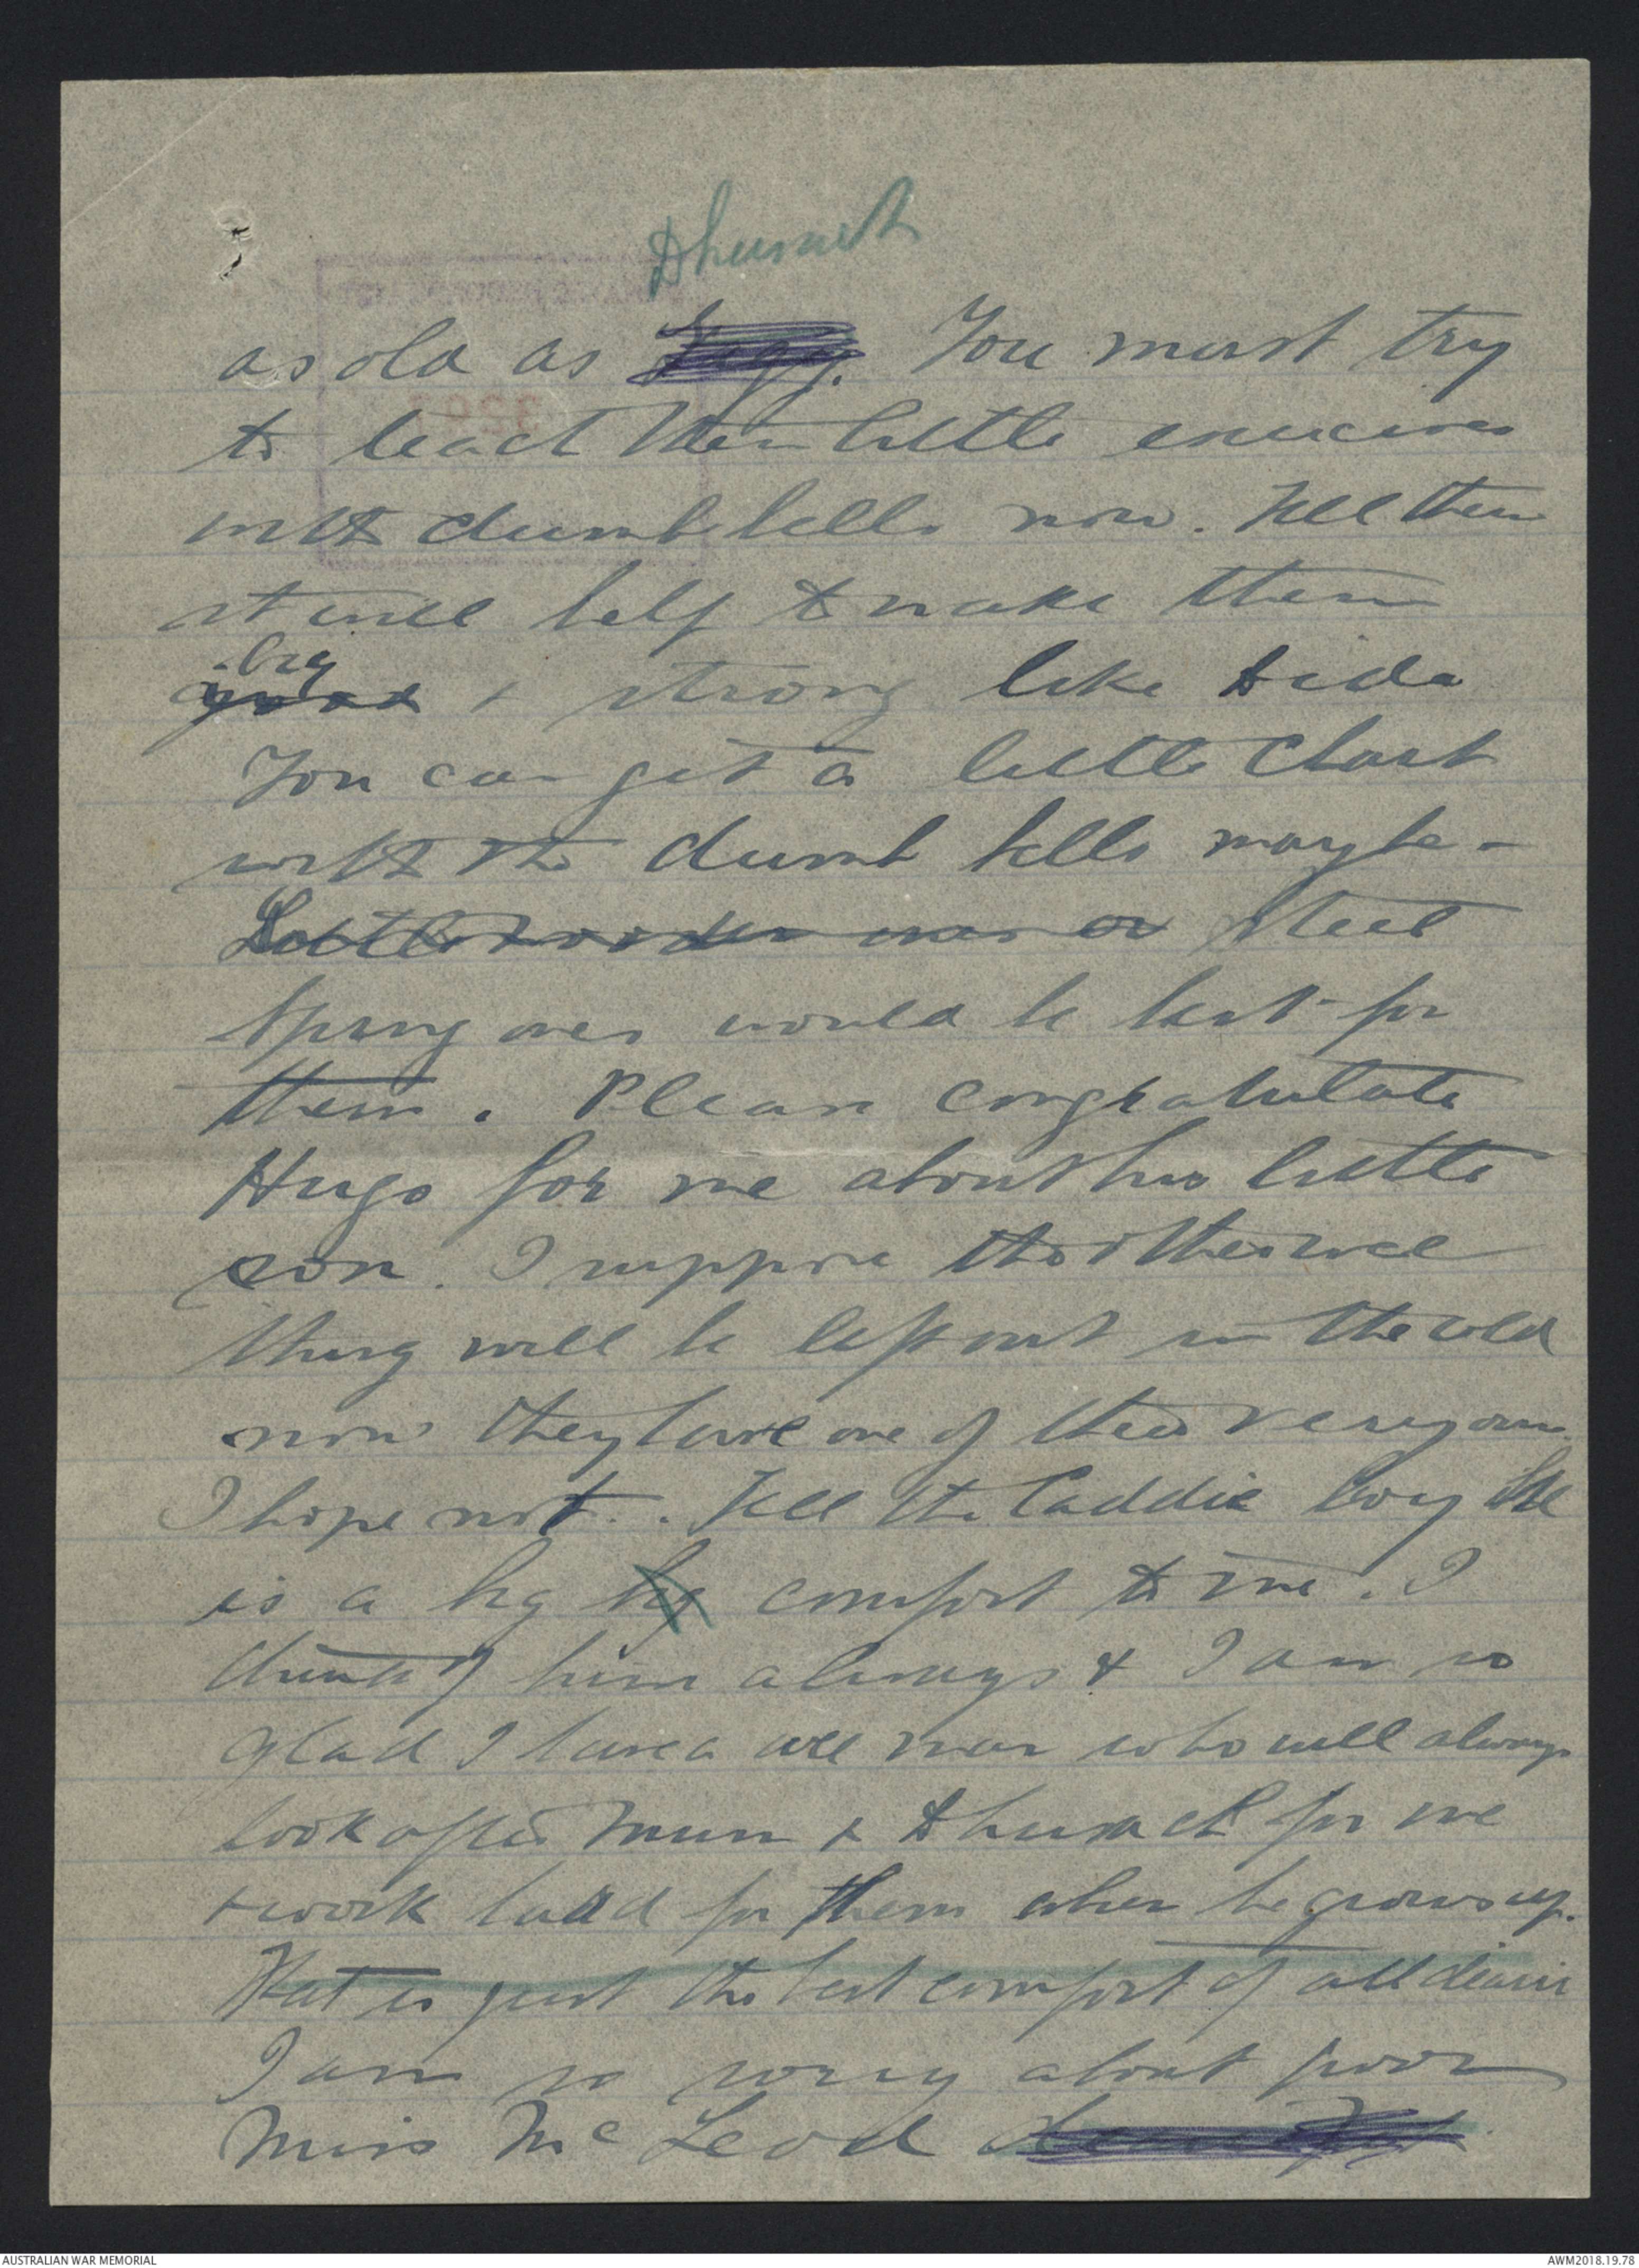 Dhurach
as old as You must try
to teach them little exercises
with dumb bells now. Tell them
it will help to make them
big
good & strong like Dida
You can get a little Chart
with the dumb bells maybe -
Little wooden ones or steel
spring ones would be best for
them. Please congratulate
Hugo for me about his little
son. I suppose the other wee
thing will be left out in the cold
now they have one of their very own.
I hope not. Tell the Laddie boy He
is a big big comfort to me. I
think of him always & I am so
glad I have a wee man who will always
look after Mum & Dhurach for me
& work hard for them when he grows up.
That is just the best comfort of all dearie
I am so sorry about poor
Miss McLeod
AUSTRALIAN WAR MEMORIAL
AWM2018.19.78